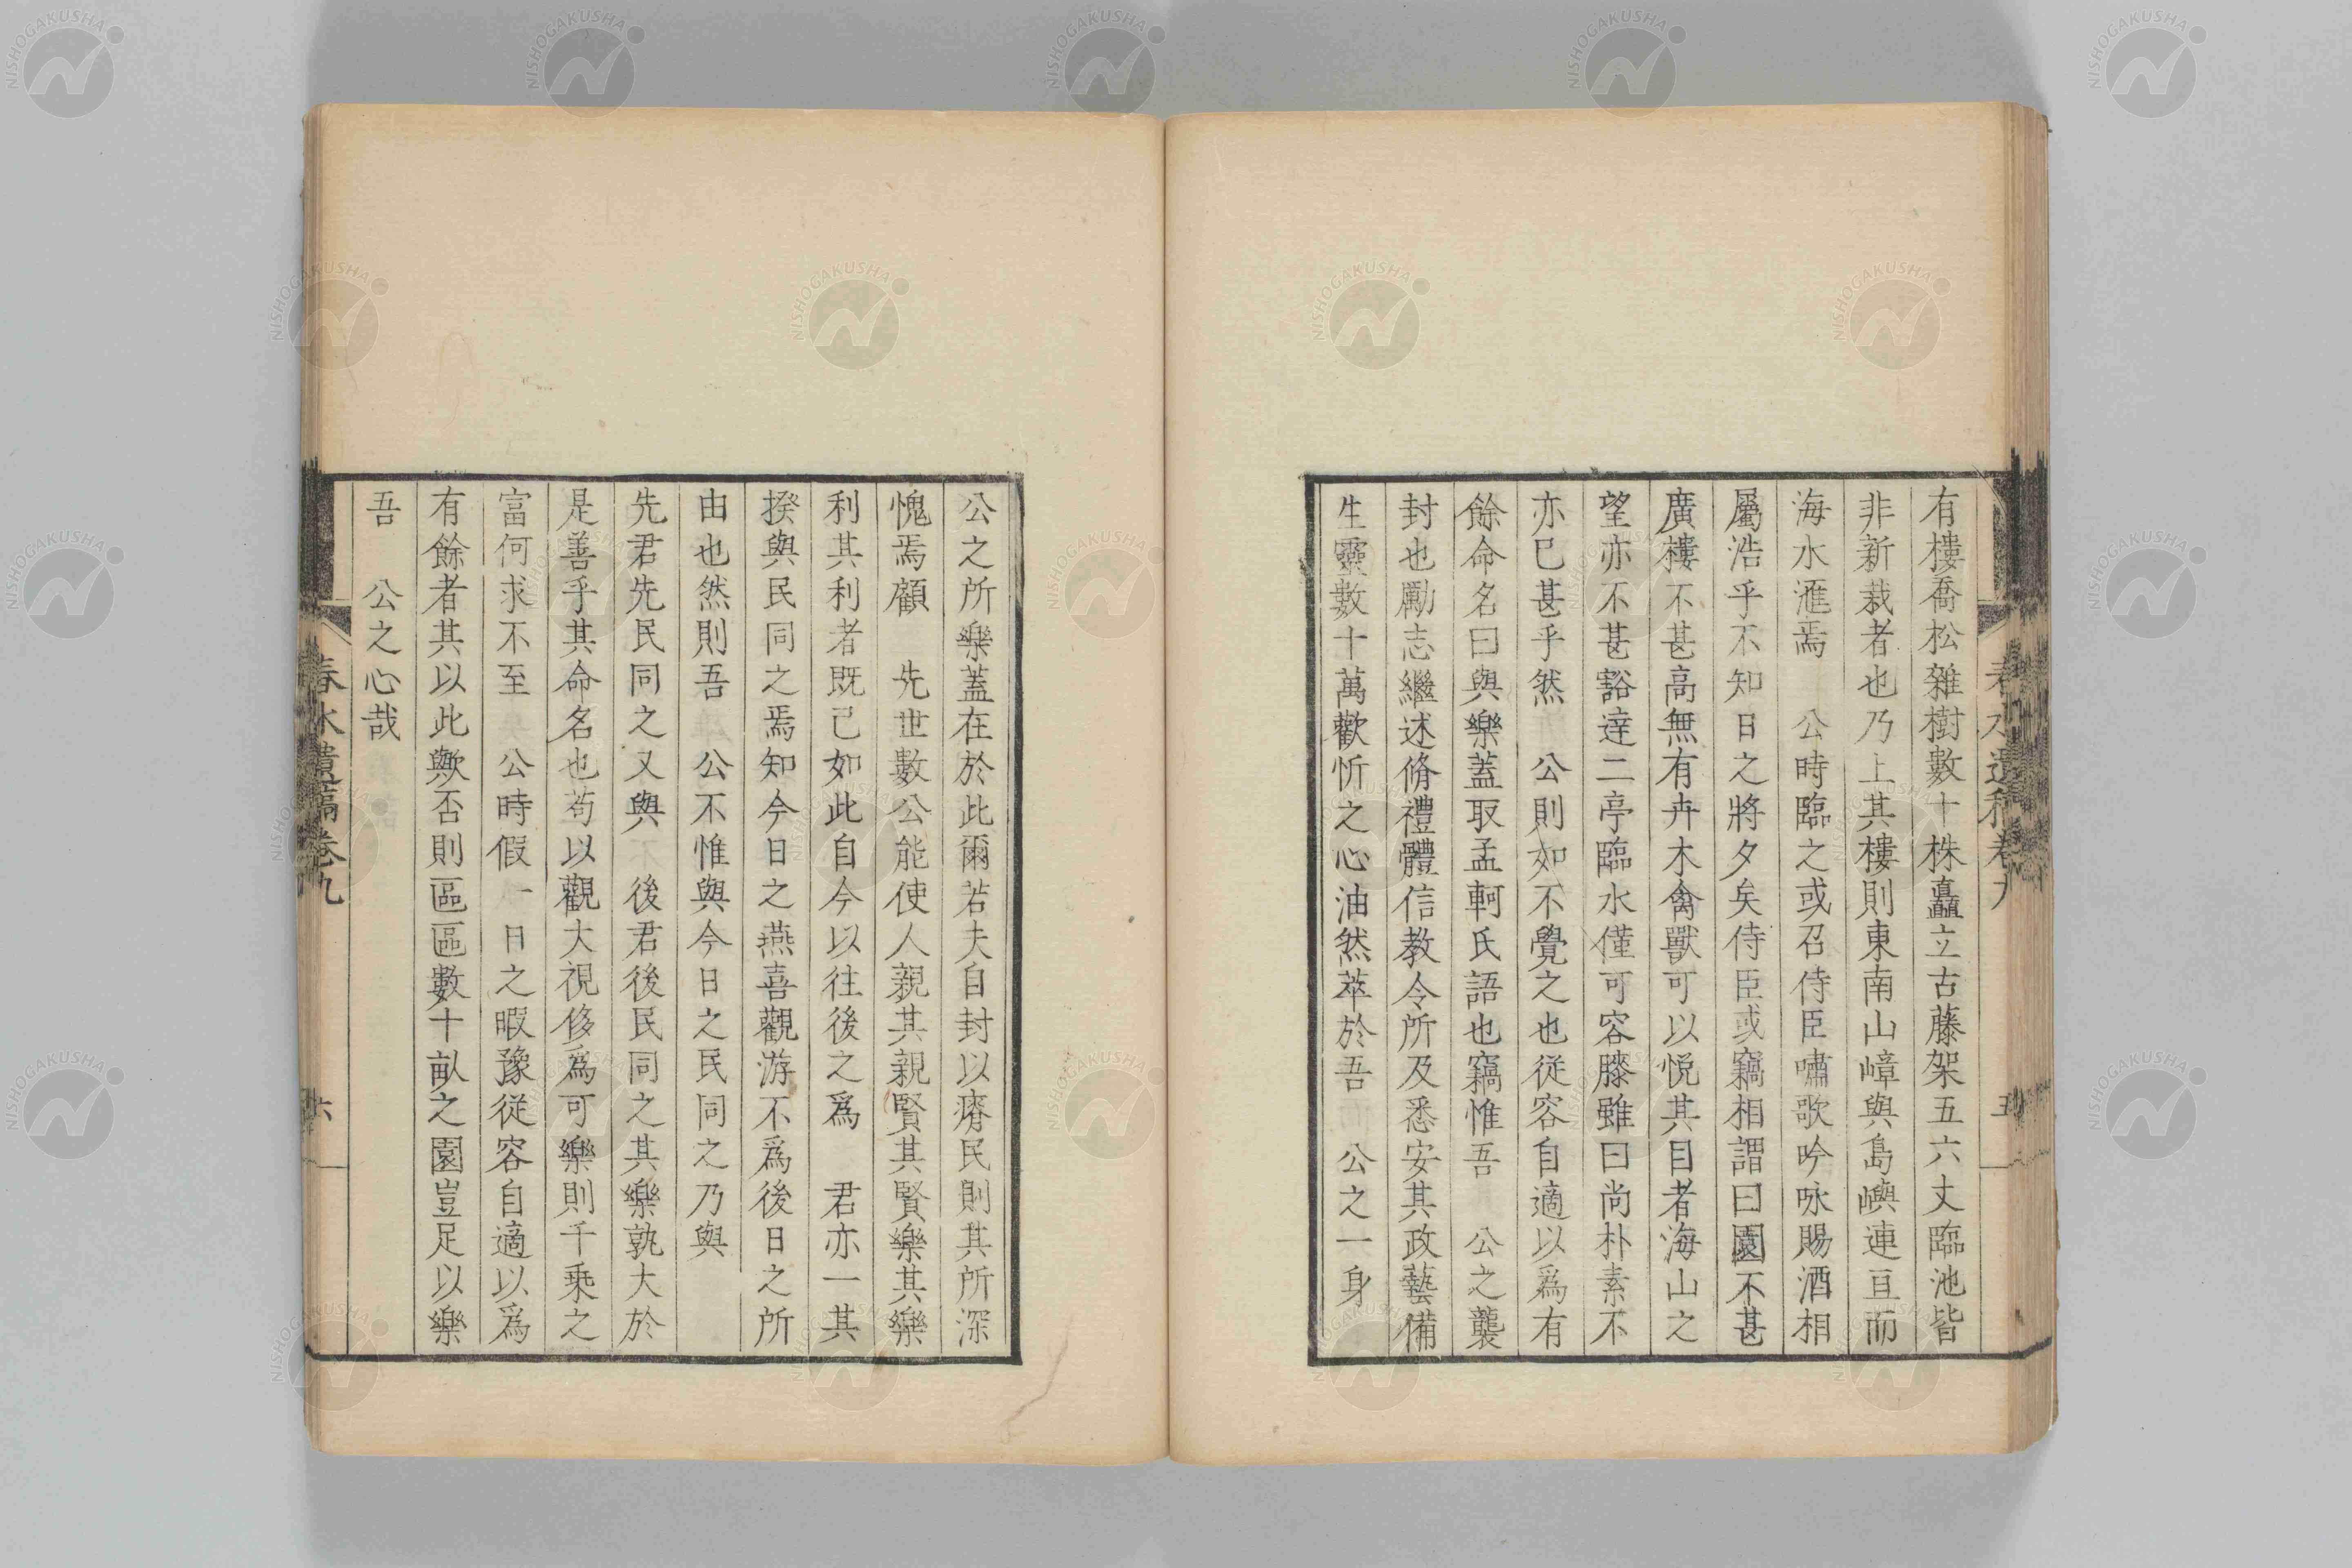 春水遺稿卷九
五
有樓喬松雜樹數十株矗立古藤架五六丈臨池皆
非新栽者也乃上其樓則東南山嶂與島嶼連亘而
海水滙焉　公時臨之或召侍臣嘯歌吟咏賜酒相
屬浩乎不知日之將夕矣侍臣或竊相謂曰園不甚
廣樓不甚高無有卉木禽獸可以悅其目者海山之
望亦不甚豁達二亭臨水僅可容膝雖曰尚朴素不
亦已甚乎然　公則如不覺之也從容自適以爲有
餘命名曰與樂蓋取孟軻氏語也竊惟吾　公之襲
封也勵志繼述脩禮體信教令所及悉安其政藝備
生靈數十萬歡忻之心油然萃於吾　公之一身
公之所樂蓋在於此爾若夫自封以瘠民則其所深
愧焉顧　先世數公能使人親其親賢其賢樂其樂
利其利者既已如此自今以往後之爲　君亦一其
揆與民同之焉知今日之燕喜觀游不爲後日之所
由也然則吾　公不惟與今日之民同之乃與
先君先民同之又與　後君後民同之其樂孰大於
是善乎其命名也苟以觀大視侈爲可樂則千乘之
富何求不至　公時假一日之暇豫從容自適以爲
有餘者其以此歟否則區區數十畝之園豈足以樂
吾　公之心哉
春水遺稿卷九
六
NISHOGAKUSHA